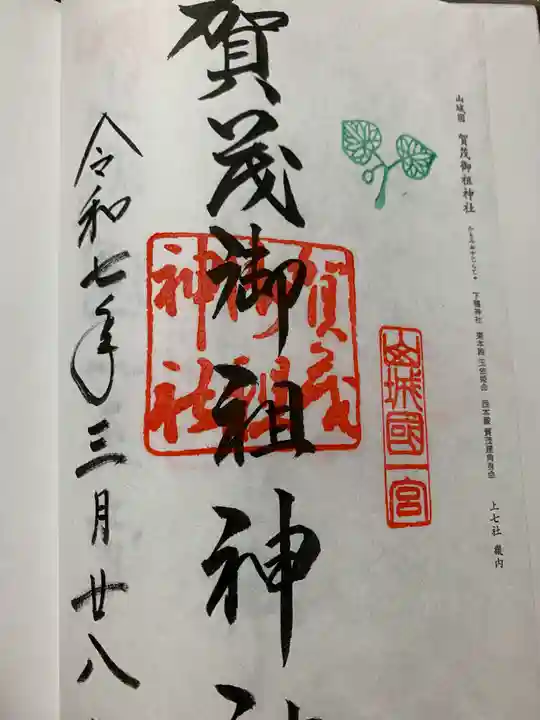 山城國 賀茂御祖神社 かもみおやじんじゃ 下鴨神社 東本殿 玉依姫命 西本殿 賀茂建角身命 上七社 畿内
山城國一宮
賀茂御祖神社
賀茂御祖神
令和七年三月廿八